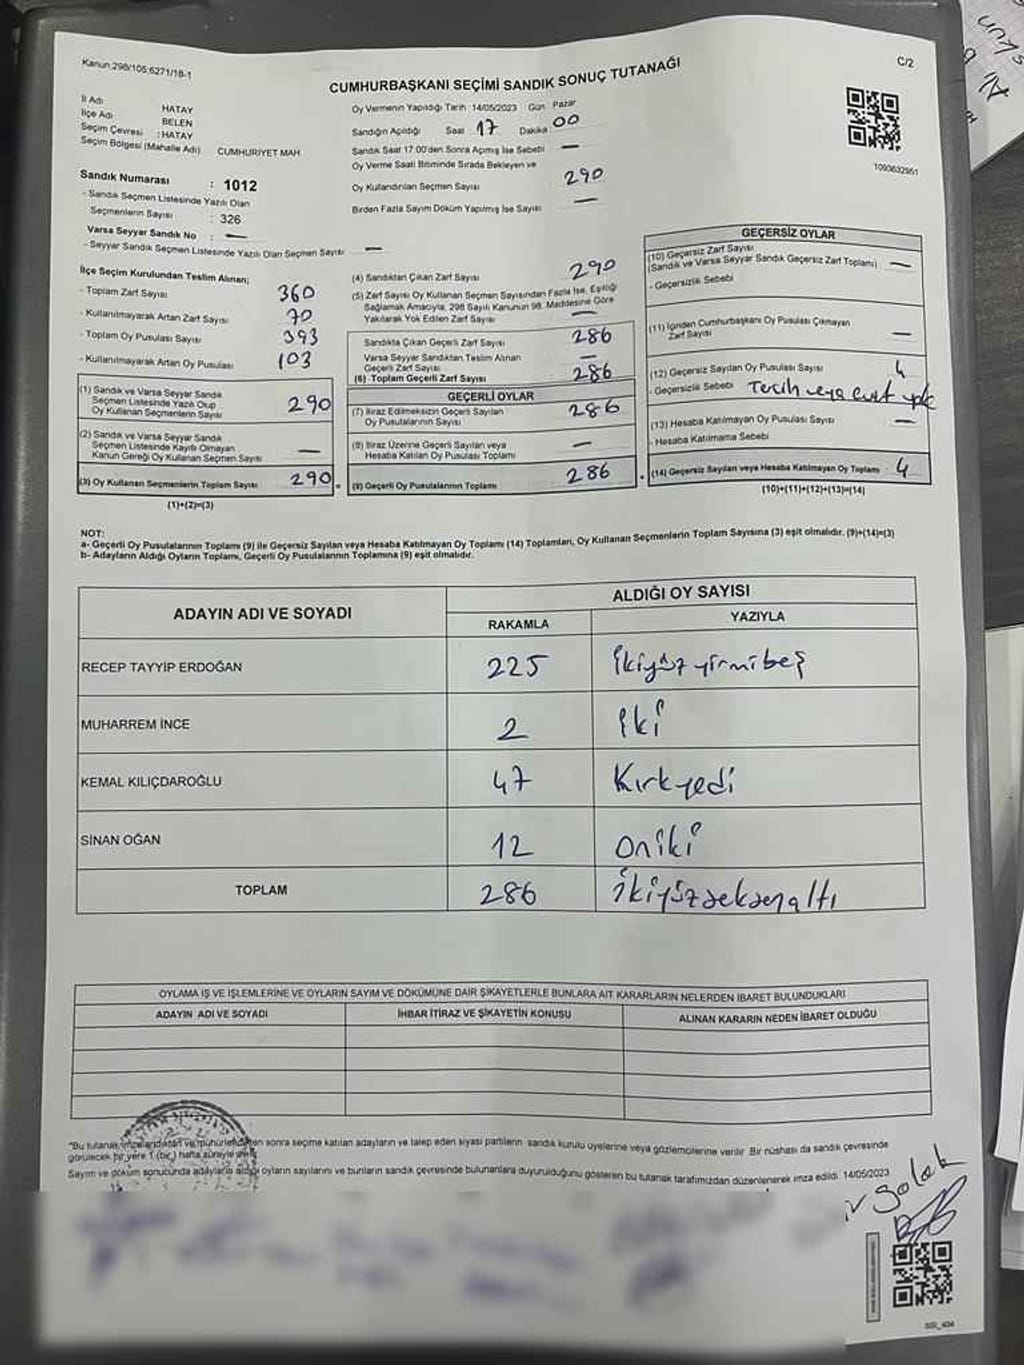 Kanun:298/105;6271/18-1
C/2
CUMHURBAŞKANI SEÇİMİ SANDIK SONUÇ TUTANAĞI
İl Adı HATAY
İlçe Adı BELEN
Seçim Çevresi : HATAY
Seçim Bölgesi (Mahalle Adı) CUMHURİYET MAH.
Sandık Numarası : 1012
- Sandık Seçmen Listesinde Yazılı Olan
Seçmenlerin Sayısı : 326
Varsa Seyyar Sandık No : —
- Seyyar Sandık Seçmen Listesinde Yazılı Olan Seçmen Sayısı —
Oy Vermenin Yapıldığı Tarih :14/05/2023 Gün Pazar
Sandığın Açıldığı Saat 17 Dakika 00
Sandık Saat 17.00'den Sonra Açımış İse Sebebi —
Oy Verme Saati Bitiminde Sırada Bekleyen ve
Oy Kullandırılan Seçmen Sayısı 290
Birden Fazla Sayım Döküm Yapılmış İse Sayısı —
1093632951
İlçe Seçim Kurulundan Teslim Alınan;
- Toplam Zarf Sayısı 360
- Kullanılmayarak Artan Zarf Sayısı 70
- Toplam Oy Pusulası Sayısı 393
- Kullanılmayarak Artan Oy Pusulası 103
(1) Sandık ve Varsa Seyyar Sandık
Seçmen Listesinde Yazılı Olup
Oy Kullanan Seçmenlerin Sayısı 290
(2) Sandık ve Varsa Seyyar Sandık
Seçmen Listesinde Kayıtlı Olmayan
Kanun Gereği Oy Kullanan Seçmen Sayısı —
(3) Oy Kullanan Seçmenlerin Toplam Sayısı 290
(1)+(2)=(3)
(4) Sandıktan Çıkan Zarf Sayısı 290
(5) Zarf Sayısı Oy Kullanan Seçmen Sayısından Fazla İse, Eşitliği
Sağlamak Amacıyla, 298 Sayılı Kanunun 98. Maddesine Göre
Yakılarak Yok Edilen Zarf Sayısı —
Sandıkta Çıkan Geçerli Zarf Sayısı 286
Varsa Seyyar Sandıktan Teslim Alınan
Geçerli Zarf Sayısı —
(6) Toplam Geçerli Zarf Sayısı 286
GEÇERLİ OYLAR
(7) İtiraz Edilmeksizin Geçerli Sayılan
Oy Pusulalarının Sayısı 286
(8) İtiraz Üzerine Geçerli Sayılan veya
Hesaba Katılan Oy Pusulası Toplamı —
(9) Geçerli Oy Pusulalarının Toplamı 286
GEÇERSİZ OYLAR
(10) Geçersiz Zarf Sayısı
(Sandık ve Varsa Seyyar Sandık Geçersiz Zarf Toplamı) —
- Geçersizlik Sebebi
(11) İçinden Cumhurbaşkanı Oy Pusulası Çıkmayan
Zarf Sayısı —
(12) Geçersiz Sayılan Oy Pusulası Sayısı 4
- Geçersizlik Sebebi Tercih veya evet yok
(13) Hesaba Katılmayan Oy Pusulası Sayısı —
- Hesaba Katılmama Sebebi
(14) Geçersiz Sayılan veya Hesaba Katılmayan Oy Toplamı 4
(10)+(11)+(12)+(13)=(14)
NOT:
a- Geçerli Oy Pusulalarının Toplamı (9) ile Geçersiz Sayılan veya Hesaba Katılmayan Oy Toplamı (14) Toplamları, Oy Kullanan Seçmenlerin Toplam Sayısına (3) eşit olmalıdır. (9)+(14)=(3)
b- Adayların Aldığı Oyların Toplamı, Geçerli Oy Pusulalarının Toplamına (9) eşit olmalıdır.
ADAYIN ADI VE SOYADI ALDIĞI OY SAYISI
RAKAMLA YAZIYLA
RECEP TAYYİP ERDOĞAN 225 İkiyüzyirmibeş
MUHARREM İNCE 2 İki
KEMAL KILIÇDAROĞLU 47 Kırkyedi
SİNAN OĞAN 12 Oniki
TOPLAM 286 İkiyüzseksenaltı
OYLAMA İŞ VE İŞLEMLERİNE VE OYLARIN SAYIM VE DÖKÜMÜNE DAİR ŞİKAYETLERLE BUNLARA AİT KARARLARIN NELERDEN İBARET BULUNDUKLARI
ADAYIN ADI VE SOYADI İHBAR İTİRAZ VE ŞİKAYETİN KONUSU ALINAN KARARIN NEDEN İBARET OLDUĞU
"Bu tutanak imzalandıktan ve mühürlendikten sonra seçime katılan adayların ve talep eden siyasi partilerin sandık kurulu üyelerine veya gözlemcilerine verilir. Bir nüshası da sandık çevresinde
görülecek bir yere 1 (bir) hafta süreyle asılır.
Sayım ve döküm sonucunda adayların aldığı oyların sayılarını ve bunların sandık çevresinde bulunanlara duyurulduğunu gösteren bu tutanak tarafımızdan düzenlenerek imza edildi. 14/05/2023